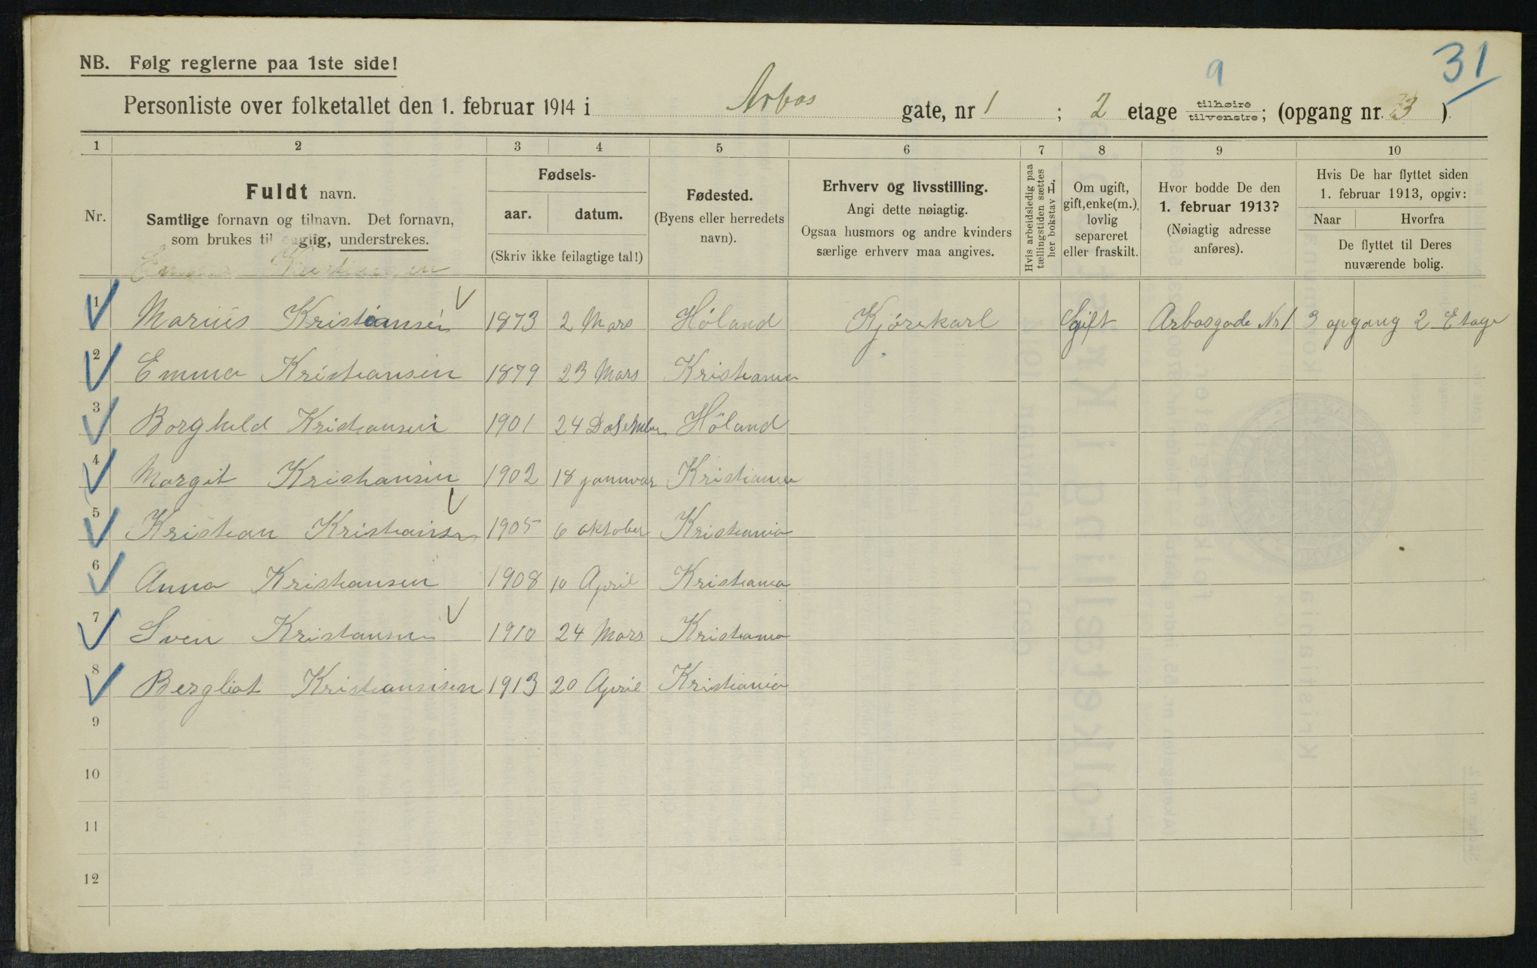 31
NB. Følg reglerne paa 1ste side!
9
Personliste over folketallet den 1. februar 1914 i Arbos gate, nr 1 ; 2 etage tilhøire tilvenstre; (opgang nr. 3 )
1 2 3 4 5 6 7 8 9 10
Nr.
Fuldt navn.
Samtlige fornavn og tilnavn. Det fornavn,
som brukes til daglig, understrekes.
Fødsels-
aar. datum.
(Skriv ikke feilagtige tal!)
Fødested.
(Byens eller herredets
navn).
Erhverv og livsstilling.
Angi dette nøiagtig.
Ogsaa husmors og andre kvinders
særlige erhverv maa angives.
Hvis arbeidsledig paa
tællingstiden sættes
her bokstav L.
Om ugift,
gift, enke(m.),
lovlig
separeret
eller fraskilt.
Hvor bodde De den
1. februar 1913?
(Nøiagtig adresse
anføres).
Hvis De har flyttet siden
1. februar 1913, opgiv:
Naar Hvorfra
De flyttet til Deres
nuværende bolig.
Emma Kristiansen
1 Marius Kristiansen 1873 2 Mars Höland Kjörekarl gift Arbosgade Nr 1 3 opgang 2 Etage
2 Emma Kristiansen 1879 23 Mars Kristiania
3 Borghild Kristiansen 1901 24 Desember Höland
4 Margit Kristiansen 1902 18 januar Kristiania
5 Kristian Kristiansen 1905 6 oktober Kristiania
6 Anna Kristiansen 1908 10 April Kristiania
7 Sven Kristiansen 1910 24 Mars Kristiania
8 Bergliot Kristiansen 1913 20 April Kristiania
9
10
11
12